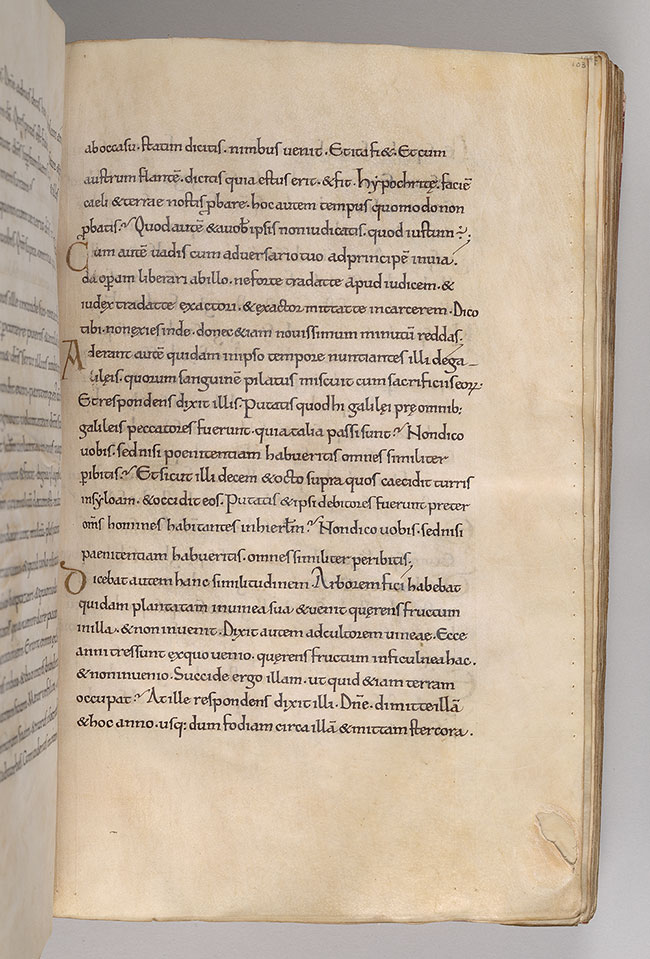 103
ab occasu. statim dicitis. nimbus uenit. Et ita fi&. Et cum
austrum flantē. dicitis quia estus erit. & fit. hẏpochritę. faciē
caeli & terrae nostis ꝓbare. hoc autem tempus quomodo non
ꝓbatis? Quod autē & a uob ipsis non iudicatis. quod iustum ÷;
Cum autē uadis cum aduersario tuo ad principē in uia.
da opam liberari ab illo. ne forte tradat te apud iudicem. &
iudex tradat te exactori. & exactor mittat te in carcerem. Dico
tibi. non exies inde. donec &iam nouissimum minutū reddas.
Aderant autē quidam in ipso tempore nuntiantes illi de ga-
lilęis. quorum sanguinē pilatus miscuit cum sacrificiis eoꝝ.
Et respondens dixit illis. Putatis quod hi galilęi prę omnib;
galileis peccatores fuerunt. quia talia passi sunt? Non dico
uobis. sed nisi poenitentiam habueritis omnes similiter
ꝑibitis? Et sicut illi decem & octo supra quos caecidit turris
in sẏloam. & occidit eos. Putatis & ipsi debitores fuerunt preter
om̄s homines habitantes in hierłm? Non dico uobis. sed nisi
paenitentiam habueritis. omnes similiter peribitis.
Dicebat autem hanc similitudinem. Arborem fici habebat
quidam plantatam in uinea sua & uenit quęrens fructum
in illa. & non inuenit. Dixit autem ad cultorem uineae. Ecce
anni tres sunt ex quo uenio. quęrens fructum in ficulnea hac.
& non inuenio. Succide ergo illam. ut quid &iam terram
occupat? At ille respondens dixit illi. Dn̄e. dimitte illā
& hoc anno. usq; dum fodiam circa illā & mittam stercora.